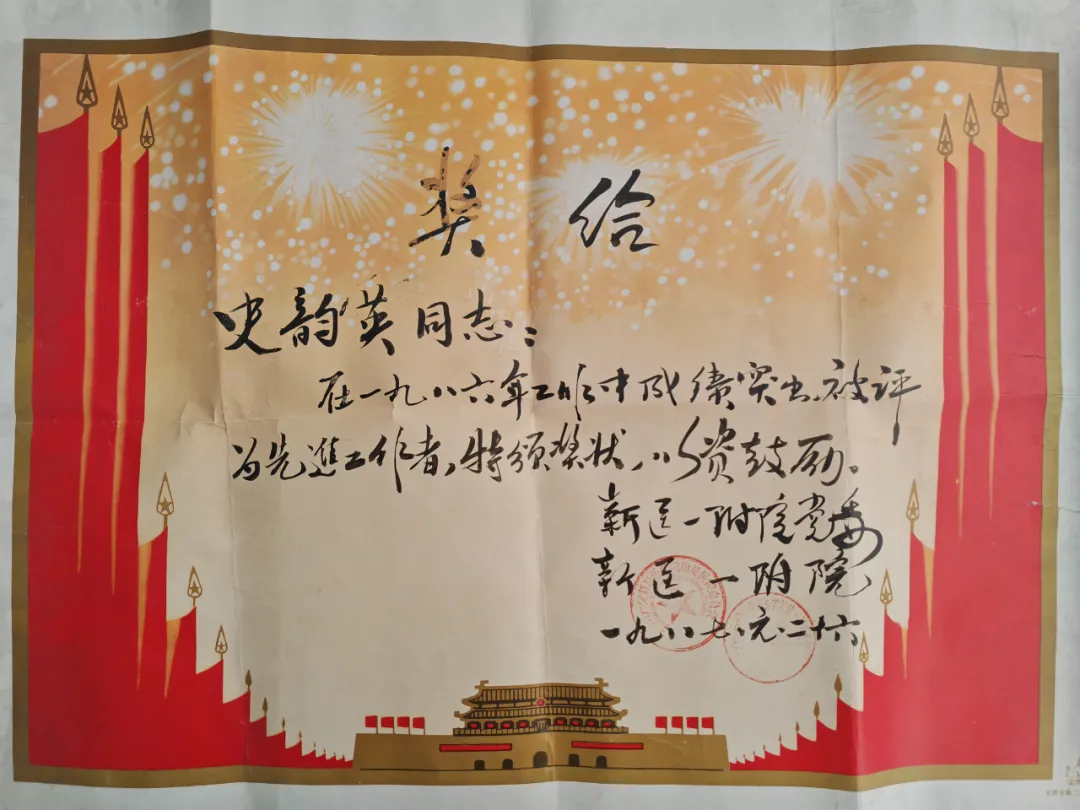 奖给
史韵英同志：
在一九八六年工作中成绩突出，被评
为先進工作者，特颁奖状，以资鼓励。
新医一附院党委
新医一附院
一九八七、元、二十六